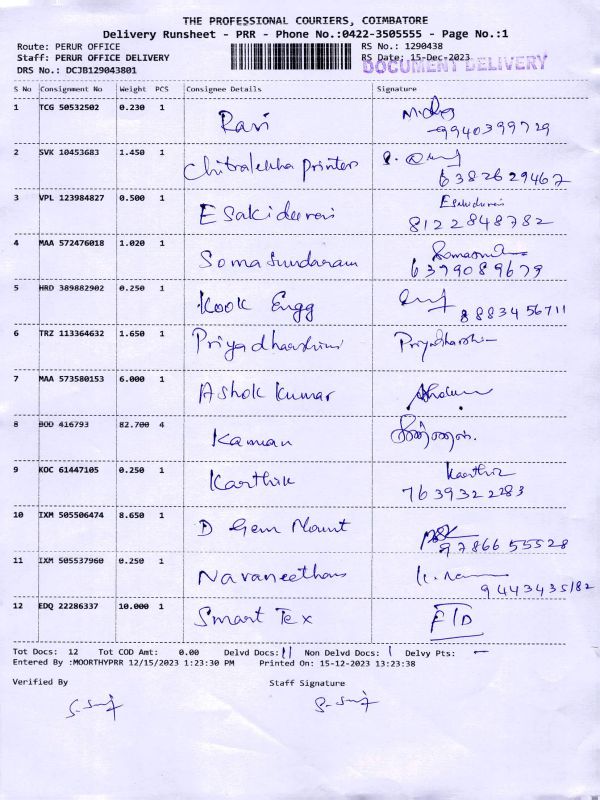 THE PROFESSIONAL COURIERS, COIMBATORE
Delivery Runsheet - PRR - Phone No.:0422-3505555 - Page No.:1
Route: PERUR OFFICE RS No.: 1290438
Staff: PERUR OFFICE DELIVERY RS Date: 15-Dec-2023
DOCUMENT DELIVERY
DRS No.: DCJB129043801
S No Consignment No Weight PCS Consignee Details Signature
1 TCG 50532502 0.230 1 Ravi
9940399729
2 SVK 10453683 1.450 1 Chitralekha printers
6382629467
3 VPL 123984827 0.500 1 Esakideerai Esakidurai
8122848782
4 MAA 572476018 1.020 1 Soma Sundaram
6379089679
5 HRD 389882902 0.250 1 Kook Engg
8883456711
6 TRZ 113364632 1.650 1 Priyadhaarshini Priyadharshi
7 MAA 573580153 6.000 1 Ashok Kumar
8 BOD 416793 82.700 4 Kannan
9 KOC 61447105 0.250 1 Karthik Karthik
7639322283
10 IXM 505506474 8.650 1 D Gem Mount
9786655528
11 IXM 505537960 0.250 1 Navaneethan
9443435182
12 EDQ 22286337 10.000 1 Smart Tex F/D
Tot Docs: 12 Tot COD Amt: 0.00 Delvd Docs: 11 Non Delvd Docs: 1 Delvy Pts: -
Entered By :MOORTHYPRR 12/15/2023 1:23:30 PM Printed On: 15-12-2023 13:23:38
Verified By Staff Signature